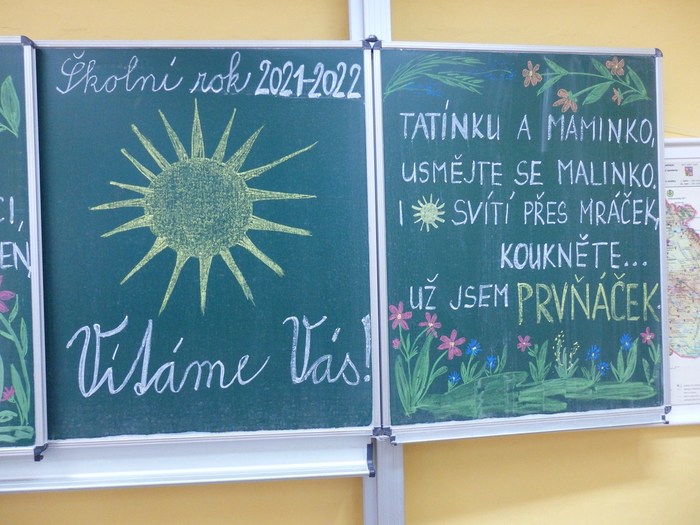 CI,
EN,
Školní rok 2021-2022
Vítáme Vás!
TATÍNKU A MAMINKO,
USMĚJTE SE MALINKO.
I SVÍTÍ PŘES MRÁČEK,
KOUKNĚTE...
UŽ JSEM PRVŇÁČEK.